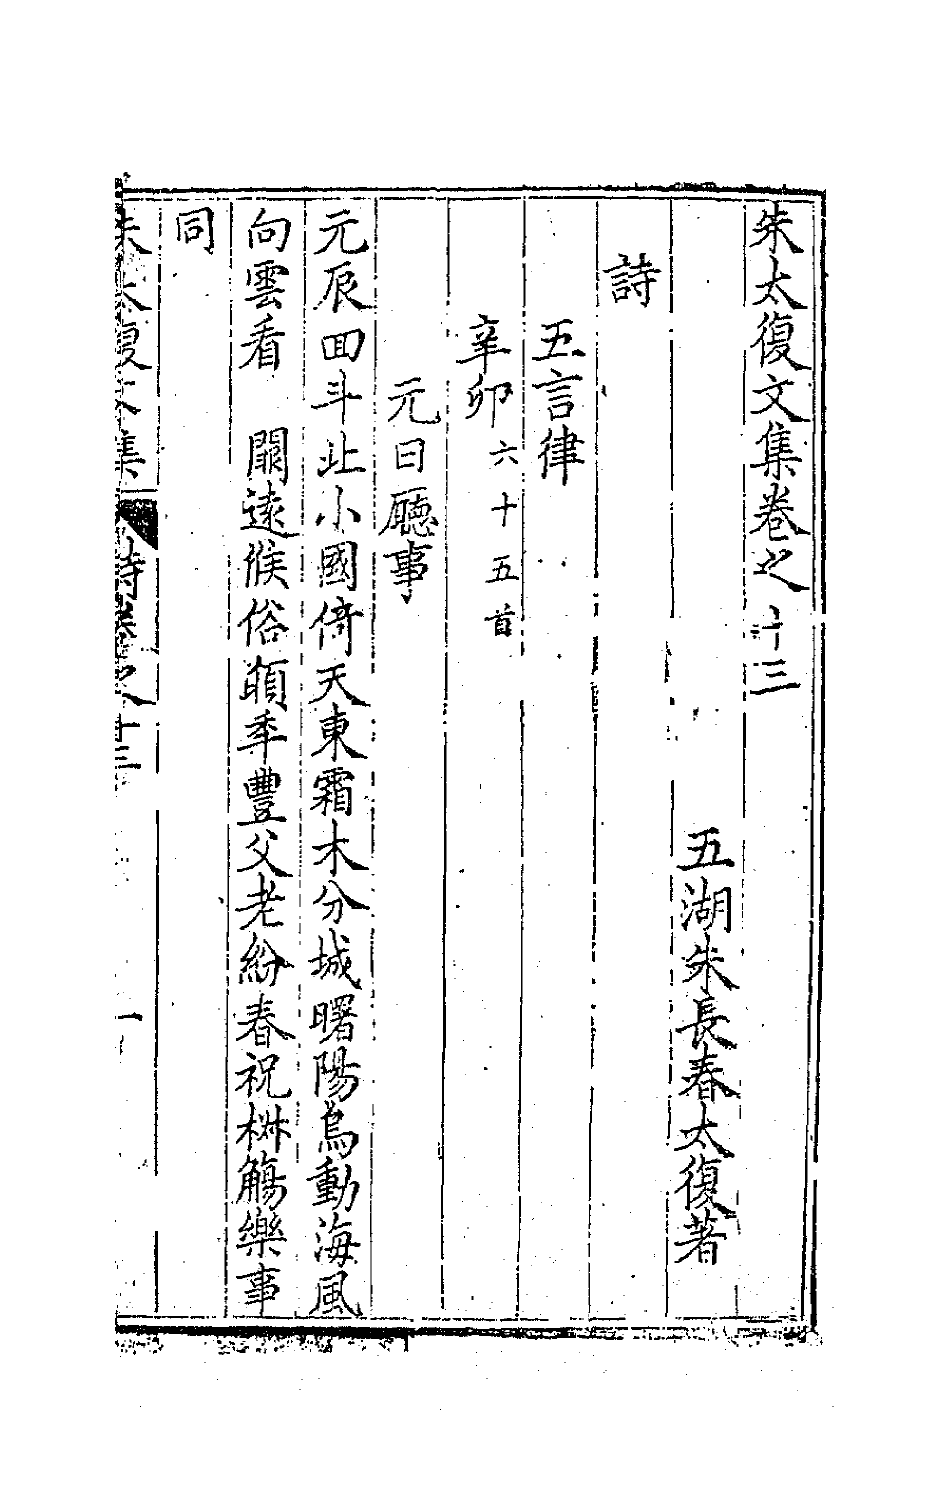 朱太復文集卷之十三
五湖朱長春太復著
詩
五言律
辛卯六十五首
元日廳事
元辰囬斗北小國倚天東霜木分城曙陽烏動海風
向雲看　闕遠候俗願秊豐父老紛春祝椒觴樂事
同
朱太復文集　詩卷之十三　一